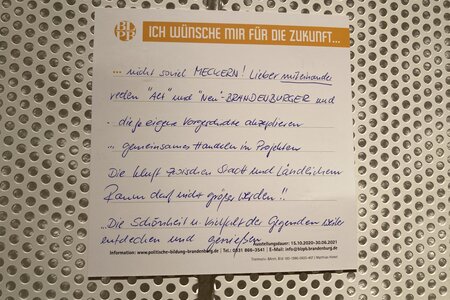 BLPB
ICH WÜNSCHE MIR FÜR DIE ZUKUNFT...
... nicht soviel MECKERN! Lieber miteinander
reden "Alt" und "Neu"-BRANDENBURGER und
. die je eigene Vorgeschichte akzeptieren
... gemeinsames Handeln in Projekten
Die Kluft zwischen Stadt und Ländlichem
Raum darf nicht größer werden!!
.. Die Schönheit u. Vielfalt der Gegenden weiter
entdecken und genießen
Ausstellungsdauer: 15.10.2020-30.06.2021
Information: www.politische-bildung-brandenburg.de | Tel.: 0331 866-3541 | E-Mail: info@blpb.brandenburg.de